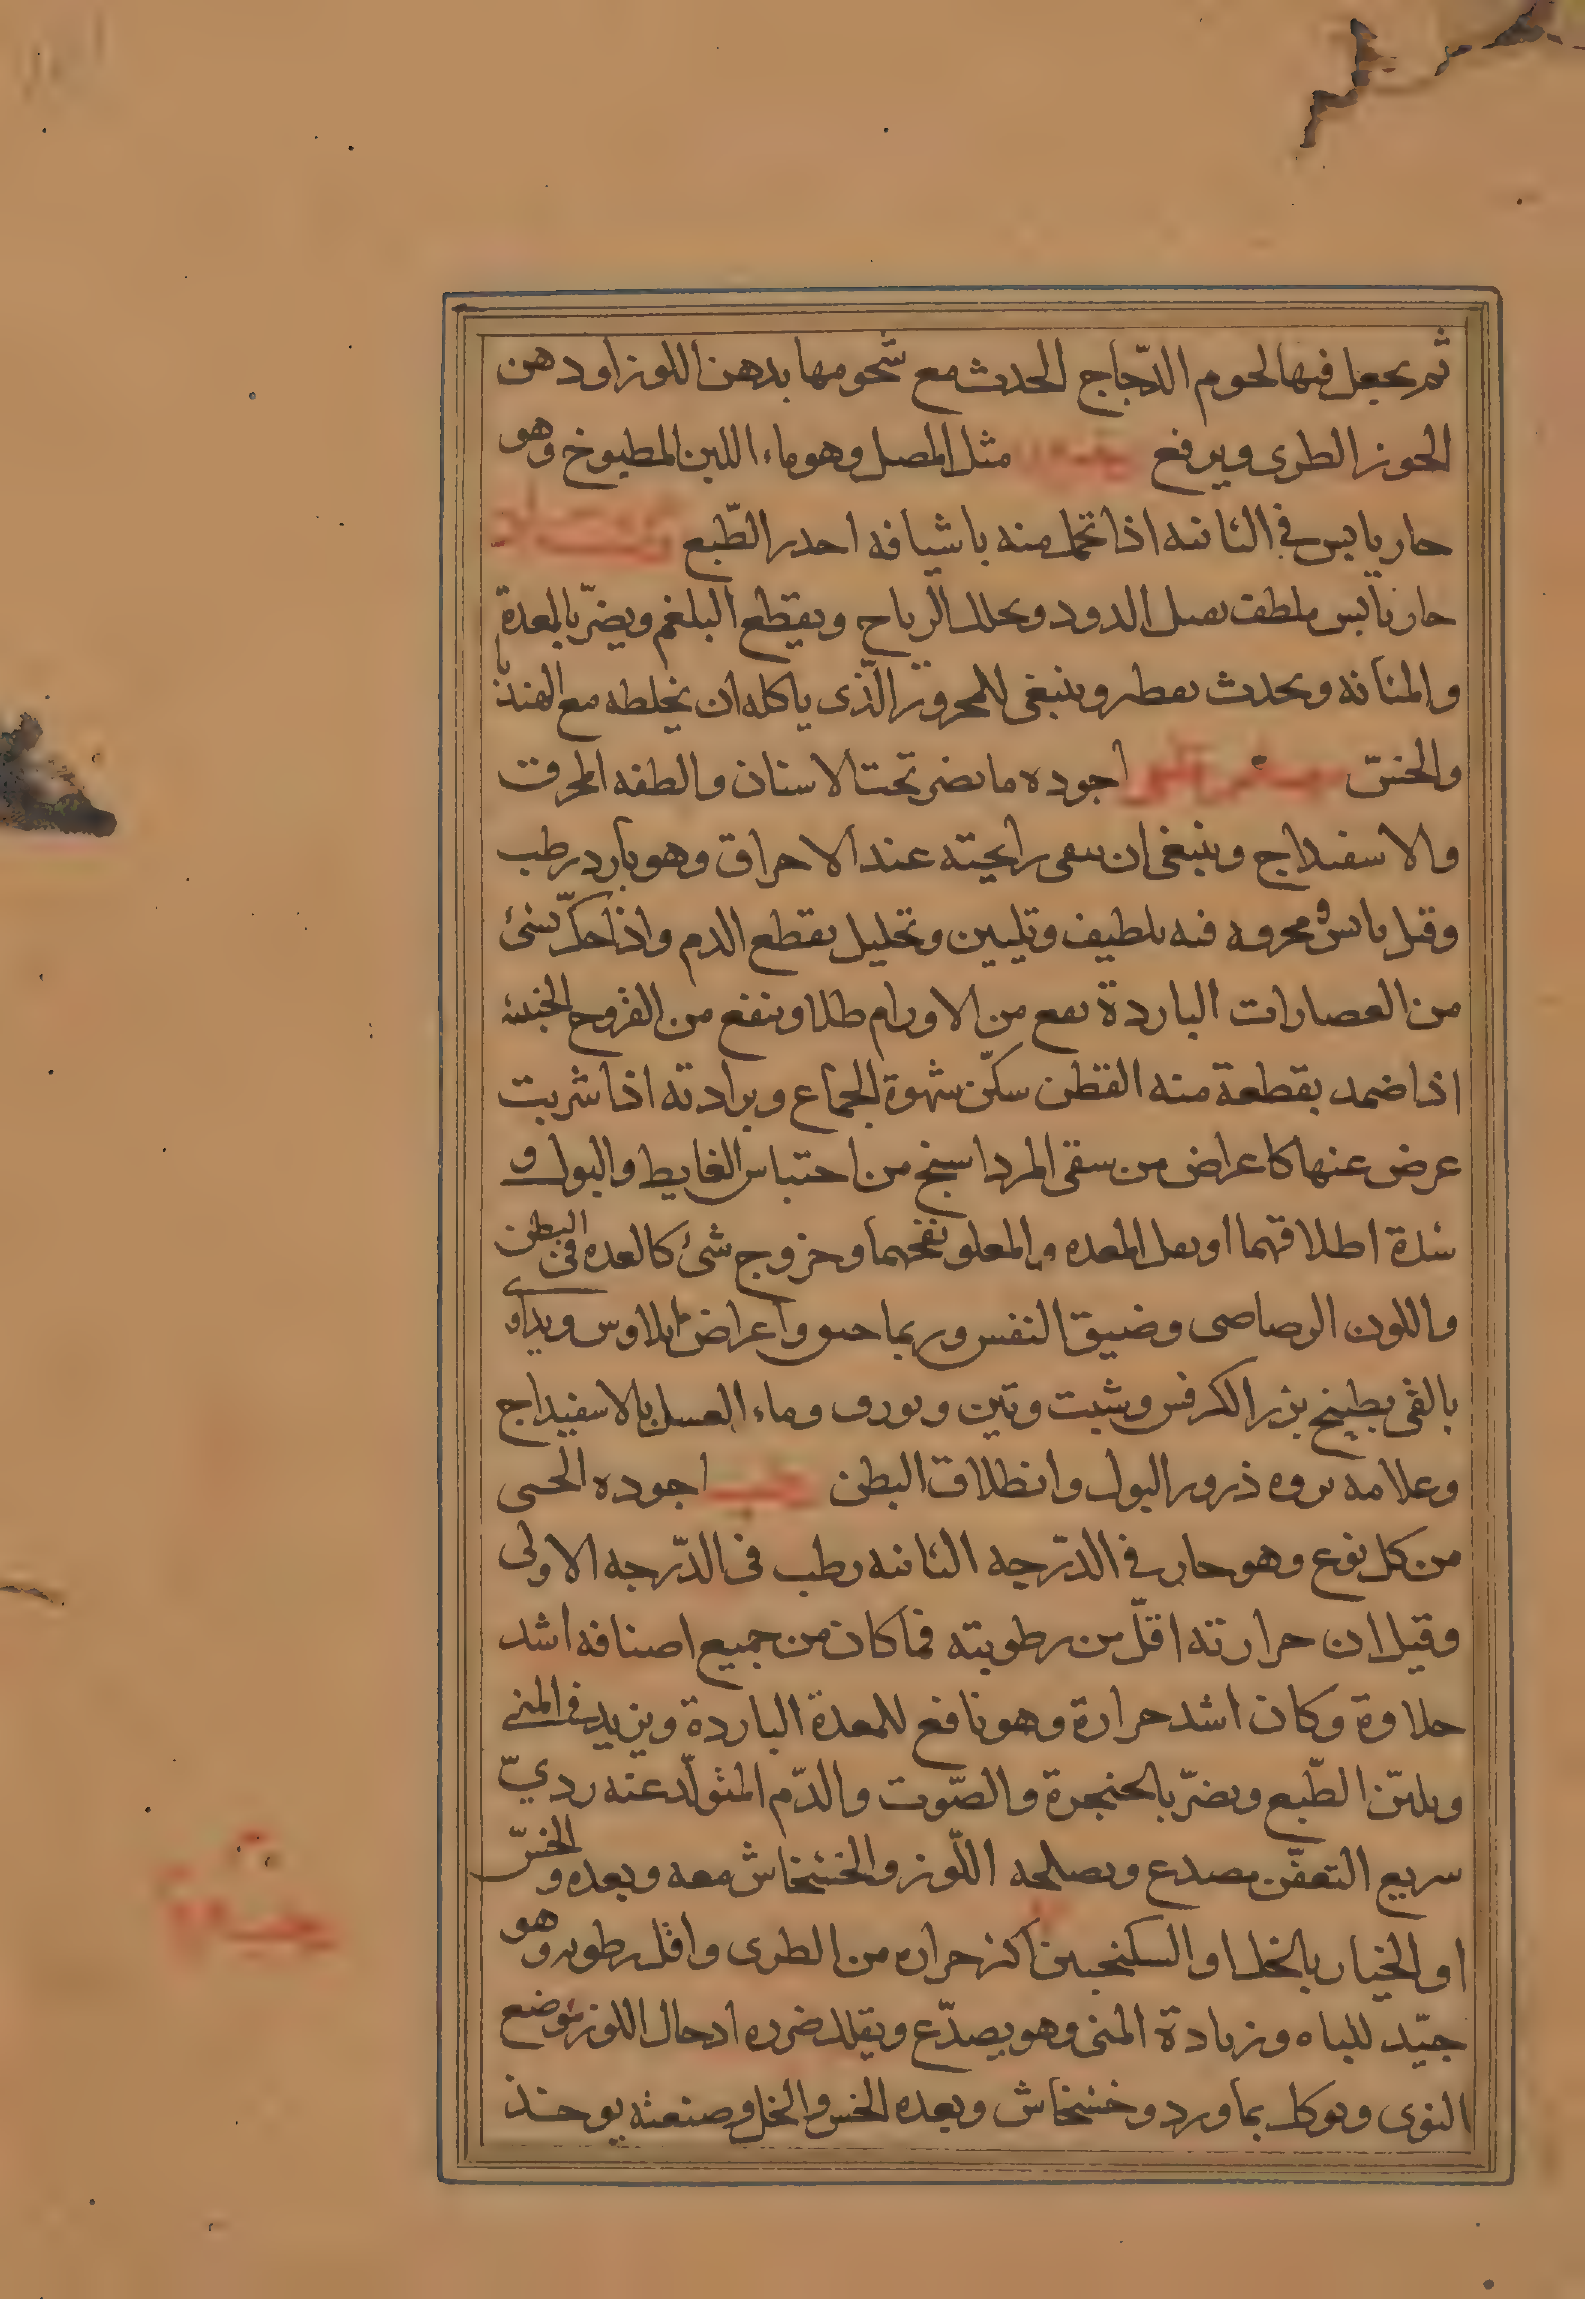 ثم يجعل فيها لحوم الدّجاج الحدث مع شحومها بدهن اللوز او دهن
الجوز الطرى ويرفع مثل المصل وهو ماء اللبن المطبوخ وهو
حار يابس فى الثانيه اذا تحمل منه باشيافه احدر الطّبع
حار يابس ملطف يقتل الدود ويحلل الرياح ويقطع البلغم ويضرّ بالمعدة
والمثانه ويحدث تقطير وينبغى للمحرور الّذى ياكله ان يخلطه مع الهندبا
والخسّ اجوده ما يضر تحت الاسنان والطفه المحرق
والاسفيداج وينبغى ان يتقى رايحته عند الاحراق وهو بارد رطب
وقيل يابس ومحروقه فيه تلطيف وتليين وتحليل يقطع الدم واذا حكّ بشئ
من العصارات الباردة نفع من الاورام طلا وينفع من القروح الخبيثه
اذا ضمد بقطعة منه القطن سكّن شهوة الجماع وبرادته اذا شربت
عرض عنها كاعراض من سقى المرداسنج من احتباس الغايط والبول و
شدة اطلاقهما او ثقل المعده والمعا ونفخهما وخروج شئ كالغده فى البطن
واللون الرصاصى وضيق النفس وربما واعراض ايلاوس ويداوى
بالقى بطبيخ بزر الكرفس وشبت وتين وبورق وماء العسل بالاسفيداج
وعلامه بروه ذرور البول وانطلاق البطن اجوده الجنى
من كل نوع وهو حار فى الدّرجه الثانيه رطب فى الدّرجه الاولى
وقيل ان حرارته اقلّ من رطوبته فما كان من جميع اصنافه اشد
حلاوة وكان اشد حرارة وهو نافع للمعدة الباردة ويزيد فى المنى
ويليّن الطّبع ويضرّ بالحنجرة والصّوت والدّم المتولّد عنه رديّ
سريع التعفّن مصدع ويصلحه اللّوز والخشخاش معه وبعده والخسّ
او الخيار بالخل او السكنجبين اكثر حراره من الطرى واقل رطوبه وهو
جيّد للباه وزيادة المنى وهو يصدّع ويقلل ضرره ادخال اللوز موضع
النوى ويوكل بماورد وخشخاش وبعده الخس والخل وصنعته يوخذ